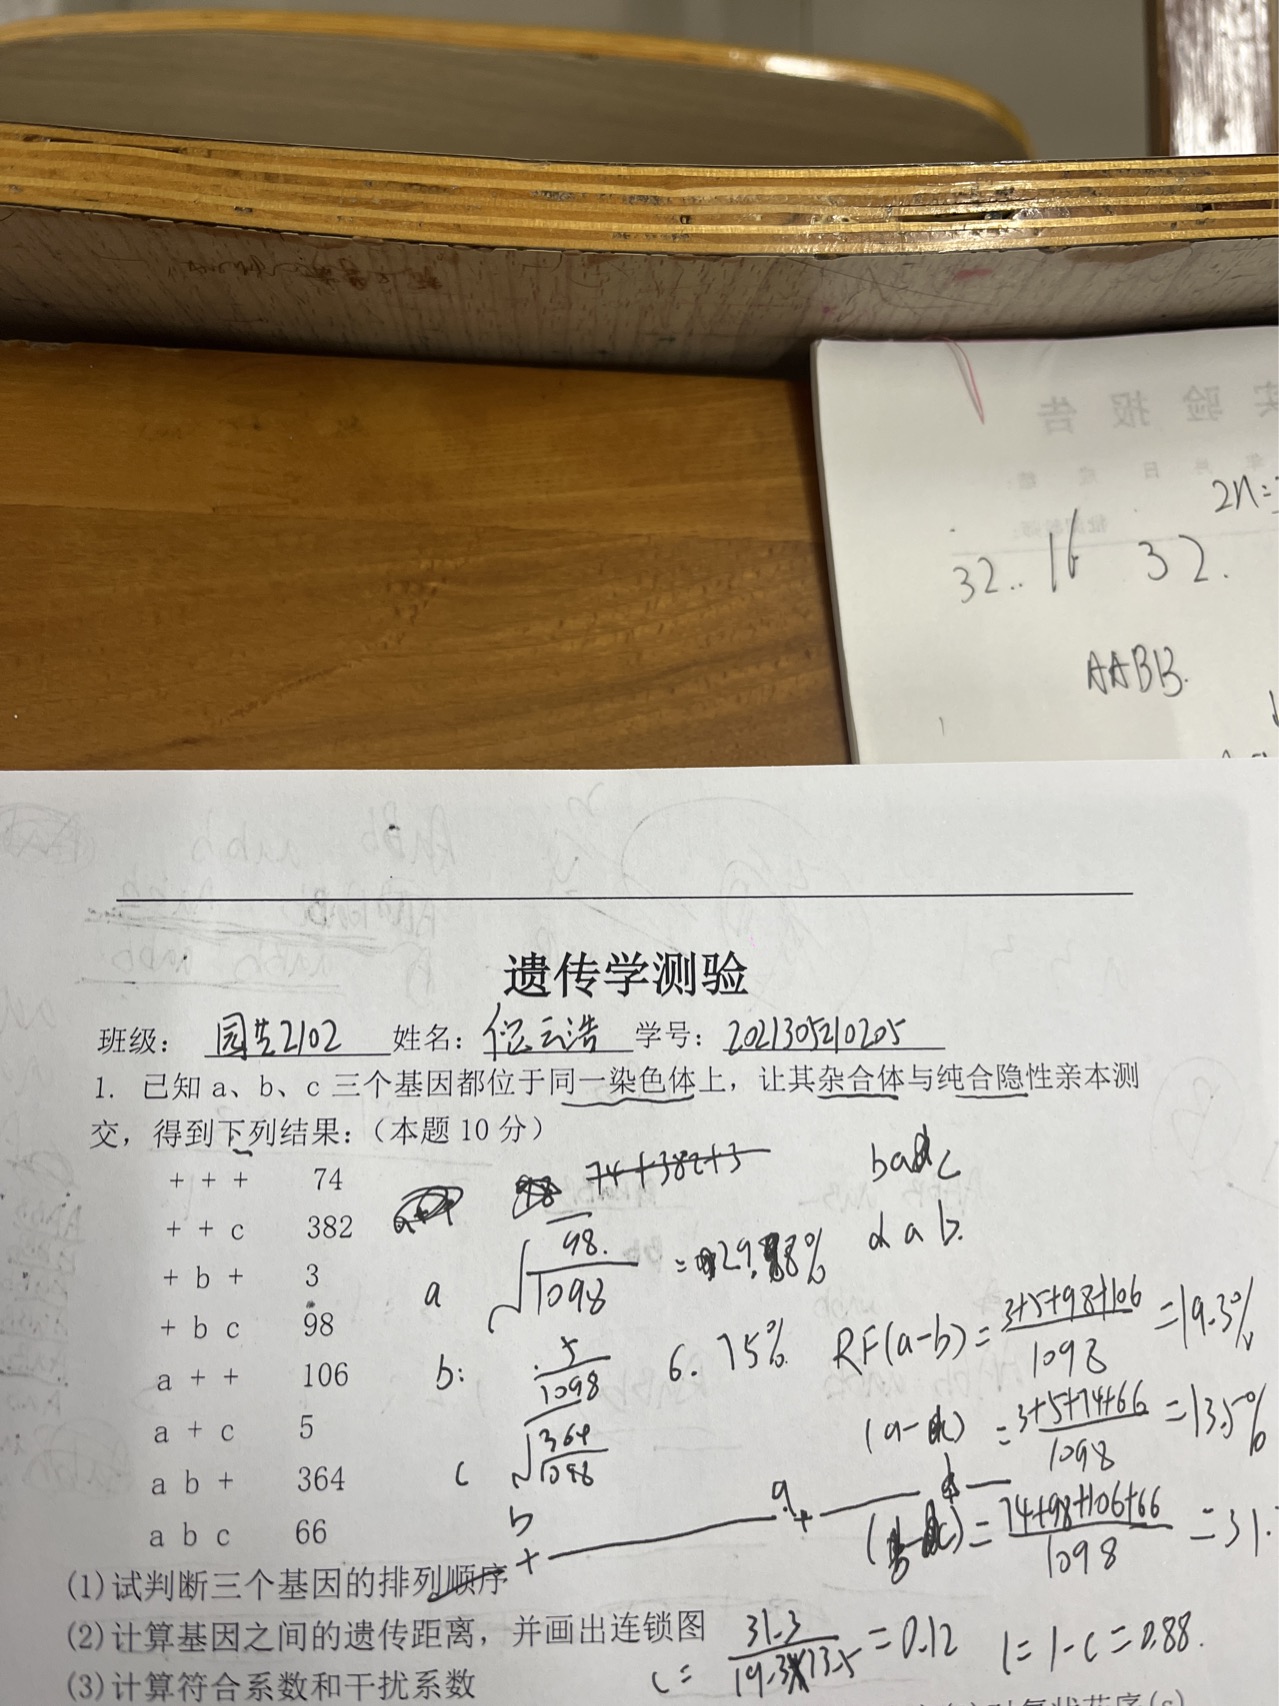 实验报告
2n=
32.. 16 32.
AABB.
遗传学测验
班级: 园艺2102 姓名: 云浩 学号: 2021305210205
1. 已知 a、b、c 三个基因都位于同一染色体上，让其杂合体与纯合隐性亲本测
交，得到下列结果:（本题 10 分）
+ + + 74
+ + c 382
+ b + 3
+ b c 98
a + + 106
a + c 5
a b + 364
a b c 66
74+382+3
a 98. / 1098
b: 5 / 1098 6.75%
c 364 / 1098
RF(a-b) = 3+5+98+106 / 1098 = 19.3%
(a-c) = 3+5+74+66 / 1098 = 13.5%
= 74+98+106+66 / 1098 = 31.
b a
+ +
(1)试判断三个基因的排列顺序
(2)计算基因之间的遗传距离，并画出连锁图
(3)计算符合系数和干扰系数
c = 31.3 / 19.3×13.5 = 0.12 I = 1-c = 0.88.